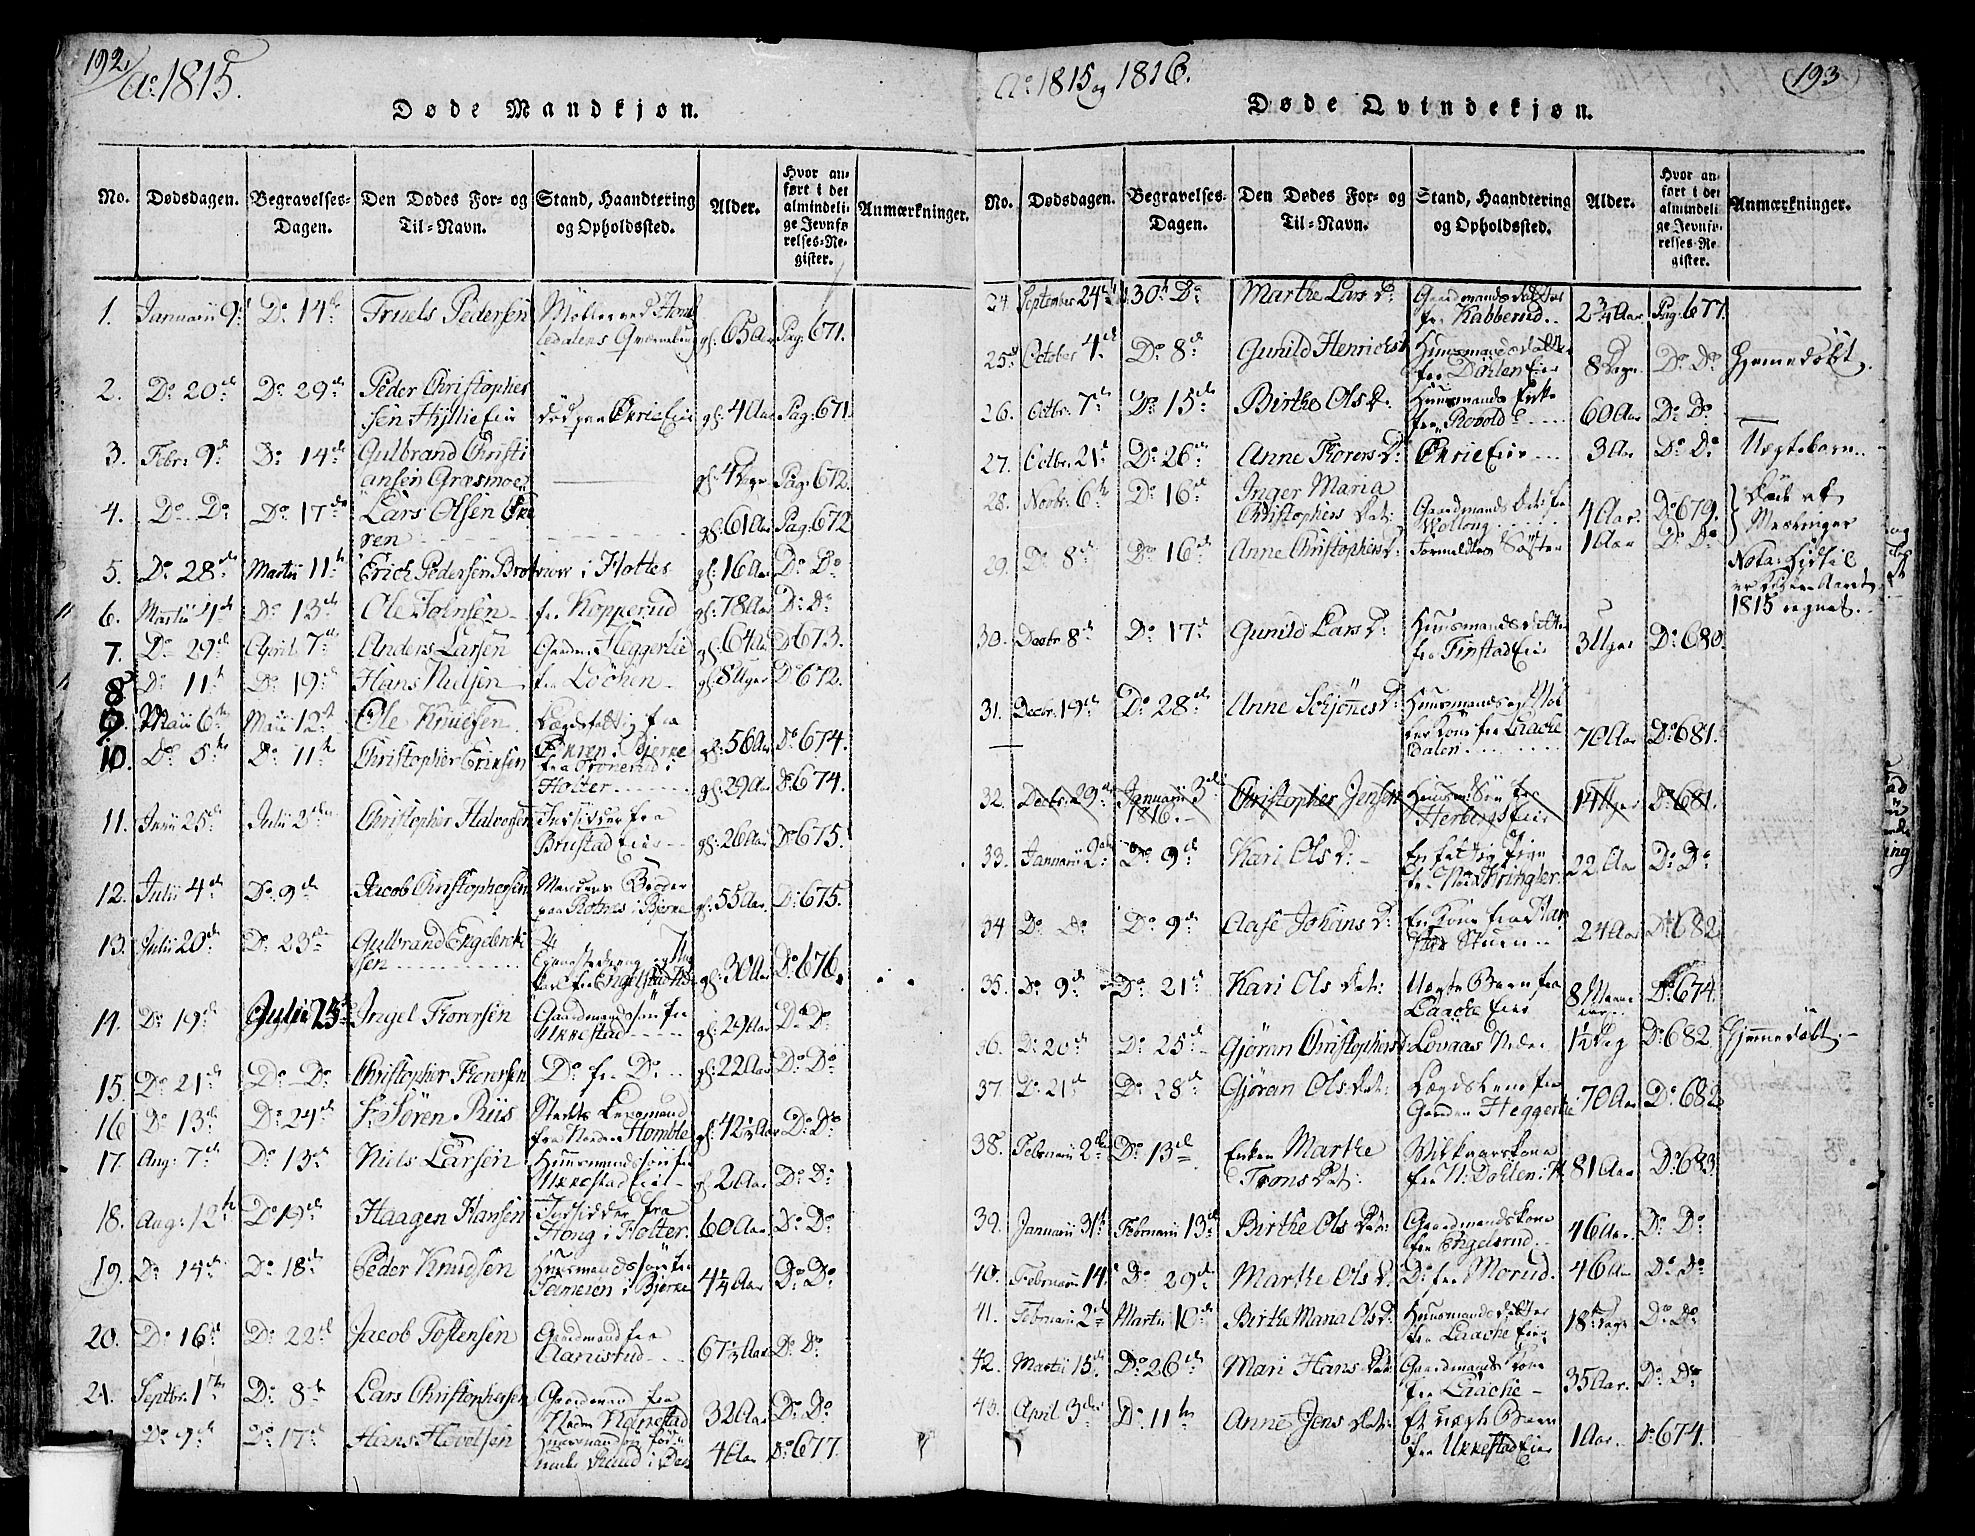 192.
Ao 1815.
Døde Mandkjøn.
No. Dødsdagen. Begravelses-Dagen. Den Dødes For- og Til-Navn. Stand, Haandtering og Opholdssted. Alder. Hvor anført i det almindelige Jevnførelses-Register. Anmærkninger.
1. Januarii 9d Do 14de Truels Pedersen Møller ved gl: 65 Aar Pag: 671.
2. Do 20de Do 29de Peder Christophersen Hyllie Eier død paa gl: 4 Aar Pag: 671.
3. Febr: 9d Do 14de Gulbrand Christiansen Græsmoe gl: Pag: 672.
4. Do Do Do 17de Lars Olsen gl: 61 Aar Pag: 672
5. Do 28de Martii 11te Erich Pedersen i Holter gl: 16 Aar Do Do
6. Martii 4de Do 13de Ole fra Kopperud gl: 78 Aar Do Do
7. Do 29de April 7de Anders Larsen Heggerlie gl: 64 Aar Do 673.
8 Do 11te Do 19de Hans Nielsen fra Løøhen gl: 8 Uger Do 672.
9. Maii 6te Maii 12te Ole Knudsen Lægdsfattig fra i Bjerke gl: 56 Aar Do 674.
10. Do 5te Do 11te Christopher Ericksen fra i Holter gl: 29 Aar Do 674.
11. Junii 25de Julii 2den Christopher Halvorsen Indsidder fra Brustad Eier gl: 26 Aar Do 675.
12. Julii 4de Do 9de Jacob Christophersen Mandens Broder paa Rotnes i Bjerke gl: 55 Aar. Do 675.
13. Julii 20de Do 23de Gulbrand gl: 30 Aar Do 676.
14. Do 19de Julii 25de Ingel Torersen Gaardmandssøn fra Ukkestad gl: 29 Aar Do Do
15. Do 21de Do Do Christopher Torersen Do fr. Do gl: 22 Aar Do Do
16 Do 13de Do 24de Sr Sören Riis fra Nordre Homble gl: 42½ Aar Do Do
17. Aug: 7de Do 13de Niels Larsen Huusmandssøn fra Ukkestad Eier gl: 2 Aar Do Do
18. Aug: 12te Do 19de Haagen Hansen Indsidder fra Hong i Holter. 60 Aar Do Do
19. Do 14de Do 18de Peder Knudsen Huusmandssøn fra i Bjerke 4½ Aar Do Do
20. Do 16de Do 22de Jacob Tostensen Gaardmand fra Aanistad 67½ Aar Do Do
21. Septbr: 1ste Do 8de Lars Christophersen Gaardmand fra 32 Aar Do Do
Do 9de Do 17de Hans 4 Aar Do 677.
Ao 1815 og 1816.
193
Døde Qvindekjøn.
No. Dødsdagen. Begravelses-Dagen. Den Dødes For- og Til-Navn. Stand, Haandtering og Opholdssted. Alder. Hvor anført i det almindelige Jevnførelses-Register. Anmærkninger.
24 September 24de 30te Do Marthe Lars D: Gaardmands datter fra Kabberud 2¾ Aar Pag: 677.
25. October 4de Do 8de Gunild Henrichs D Huusmandsdatter fra Dohlen Eier 8 Dage Do Do Hjemedøbt.
26. Octbr: 7de Do 15de Birthe Ols D: Huusmands Enke fra Rovold 60 Aar Do Do
27. Octbr: 21de Do 26de Anne Torers D: Eier 3 Aar Do Do Uægtebarn
28. Novbr: 6te Do 16de Inger Maria Christophers Dat: Gaardmands Dat: fra Wollong 4 Aar. Do 679. Døde af Meslinger
29. Do 8de Do 16de Anne Christophers D: Formeldtes Søster 1 Aar Do Do Nota: Hidtil er Aaret 1815 regnet.
30. Decbr 8de Do 17de Gunild Lars D: Huusmandsdatter fra Finstad Eier 3 Uger Do 680.
31. Decbr. 19de Do 28de Anne Schjönes D: 70 Aar Do 681.
32. Decbr. 29de Januarii 3de 1816. Christopher Jensen Huusm: Søn fra Eier 14 Uger Do 681.
33. Januarii 2den Do 9de Kari Ols D: En fattig Pige fra Nord Kringler 22 Aar Do Do
34 Do Do Do 9de Aase Johans D: En Kone fra Stuen 24 Aar Do 682
35. Do 9de Do 21de Kari Ols Dat: Uægte Barn fra Laache Eier 8 Do 674.
36. Do 20de Do 25de Gjøran Christophers D Lovaas Nedre 1½ Dag Do 682. Hjemmedøbt.
37. Do 21de Do 28de Gjøran Ols Dat: Lægdslem fra Gaarden Heggerlie 70 Aar Do 682
38. Februarii 2den Do 13de Enken Marthe Trons Dat: Vilkaarskone fra N: Dohlen i H. 81 Aar Do 683.
39. Januarii 31te Februarii 13de Birthe Ols Dat: Gaardmandskone fra Engelsrud 46 Aar. Do Do
40. Februarii 14de Do 29de Marthe Ols D: Do fra Morud. 46 Aar Do Do
41. Februarii 2den Martii 10de Birthe Maria Ols D: Huusmands datter fra Laache Eier 18 Dage Do Do
42. Martii 15de Do 26de Mari Hans Dat: Gaardmands Kone fra Laache 35 Aar. Do Do
43. April 3die Do 11te Anne Jens Dat: Et uægte Barn fra Ukkestad Eier 1 Aar. Do 674.